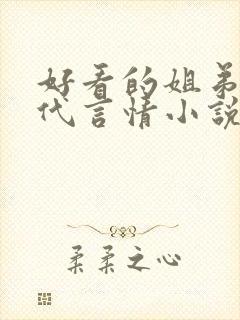 好看的姐弟
代言情小說
柔柔之心